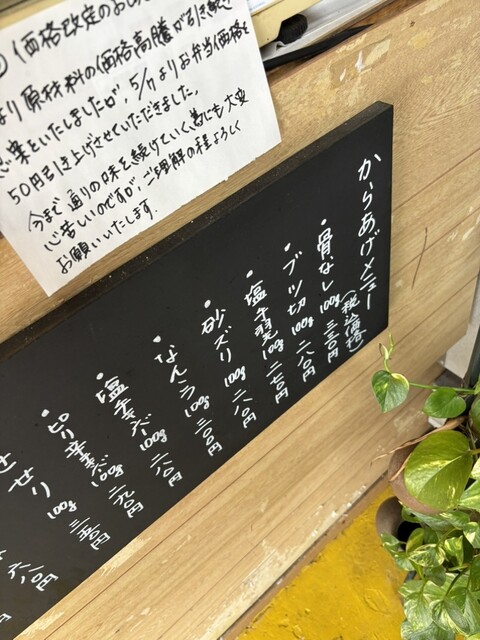 価格改定のお
より原材料の価格高騰が引き続き
案といたしましたが、5/7よりお弁当価格を
50円引き上げさせていただきました。
今まで通りの味を続けていく為にも大変
心苦しいのですが、ご理解の程よろしく
お願いいたします。
からあげメニュー
(税込価格)
・骨なし 100g 三三〇円
・ブツ切 100g 二八〇円
・塩手羽 100g 二七〇円
・砂ズリ 100g 二八〇円
・なんこつ 100g 三〇〇円
・塩手キバー 100g 二八〇円
・ピリ辛キバー 100g 二九〇円
せせり 100g 三五〇円
六八〇円
円